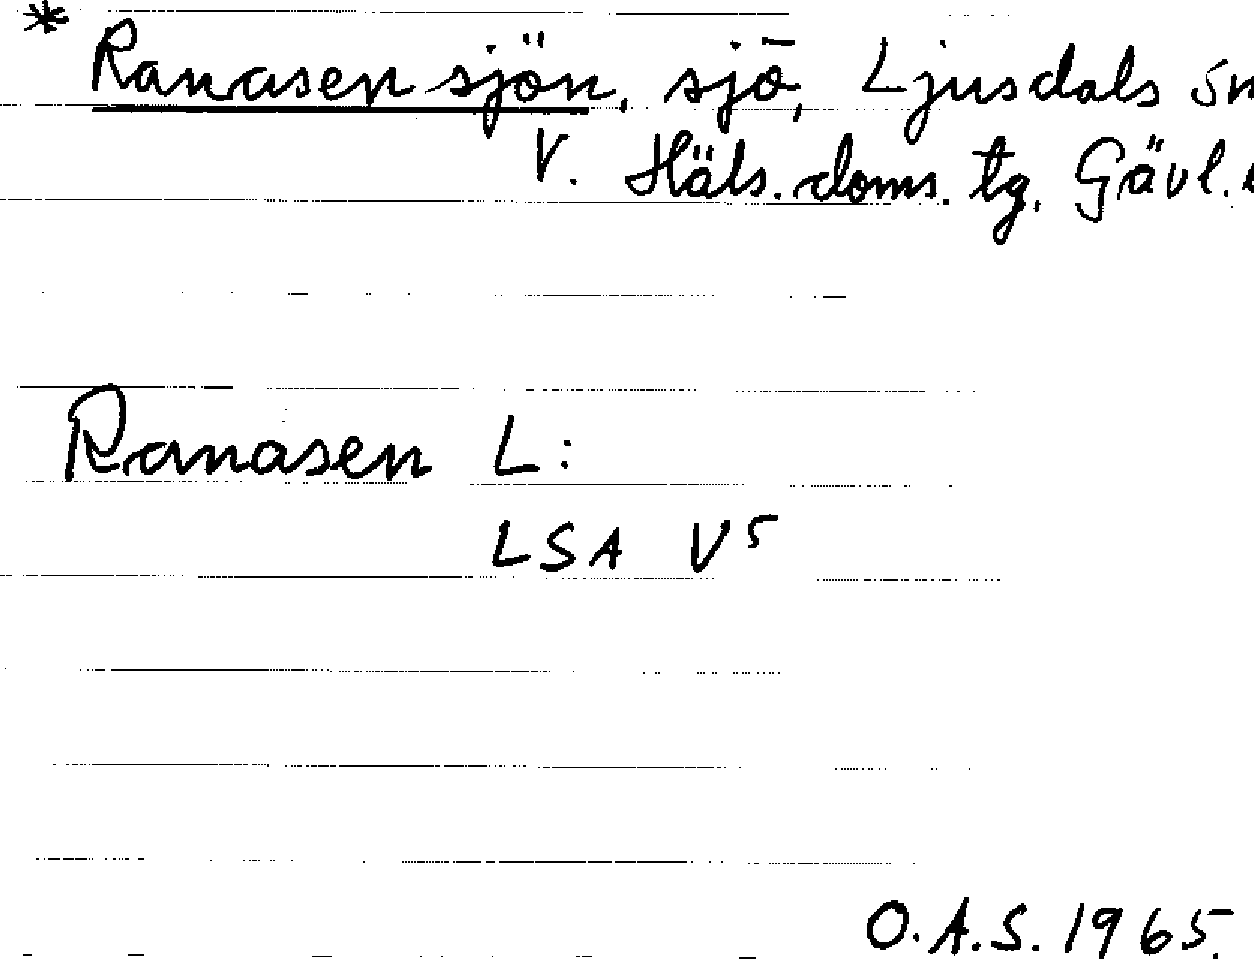 * Ranasensjön, sjö, Ljusdals sn
V. Häls. doms. tg. Gävl.
Ranasen L:
LSA V5
O.A.S. 1965.